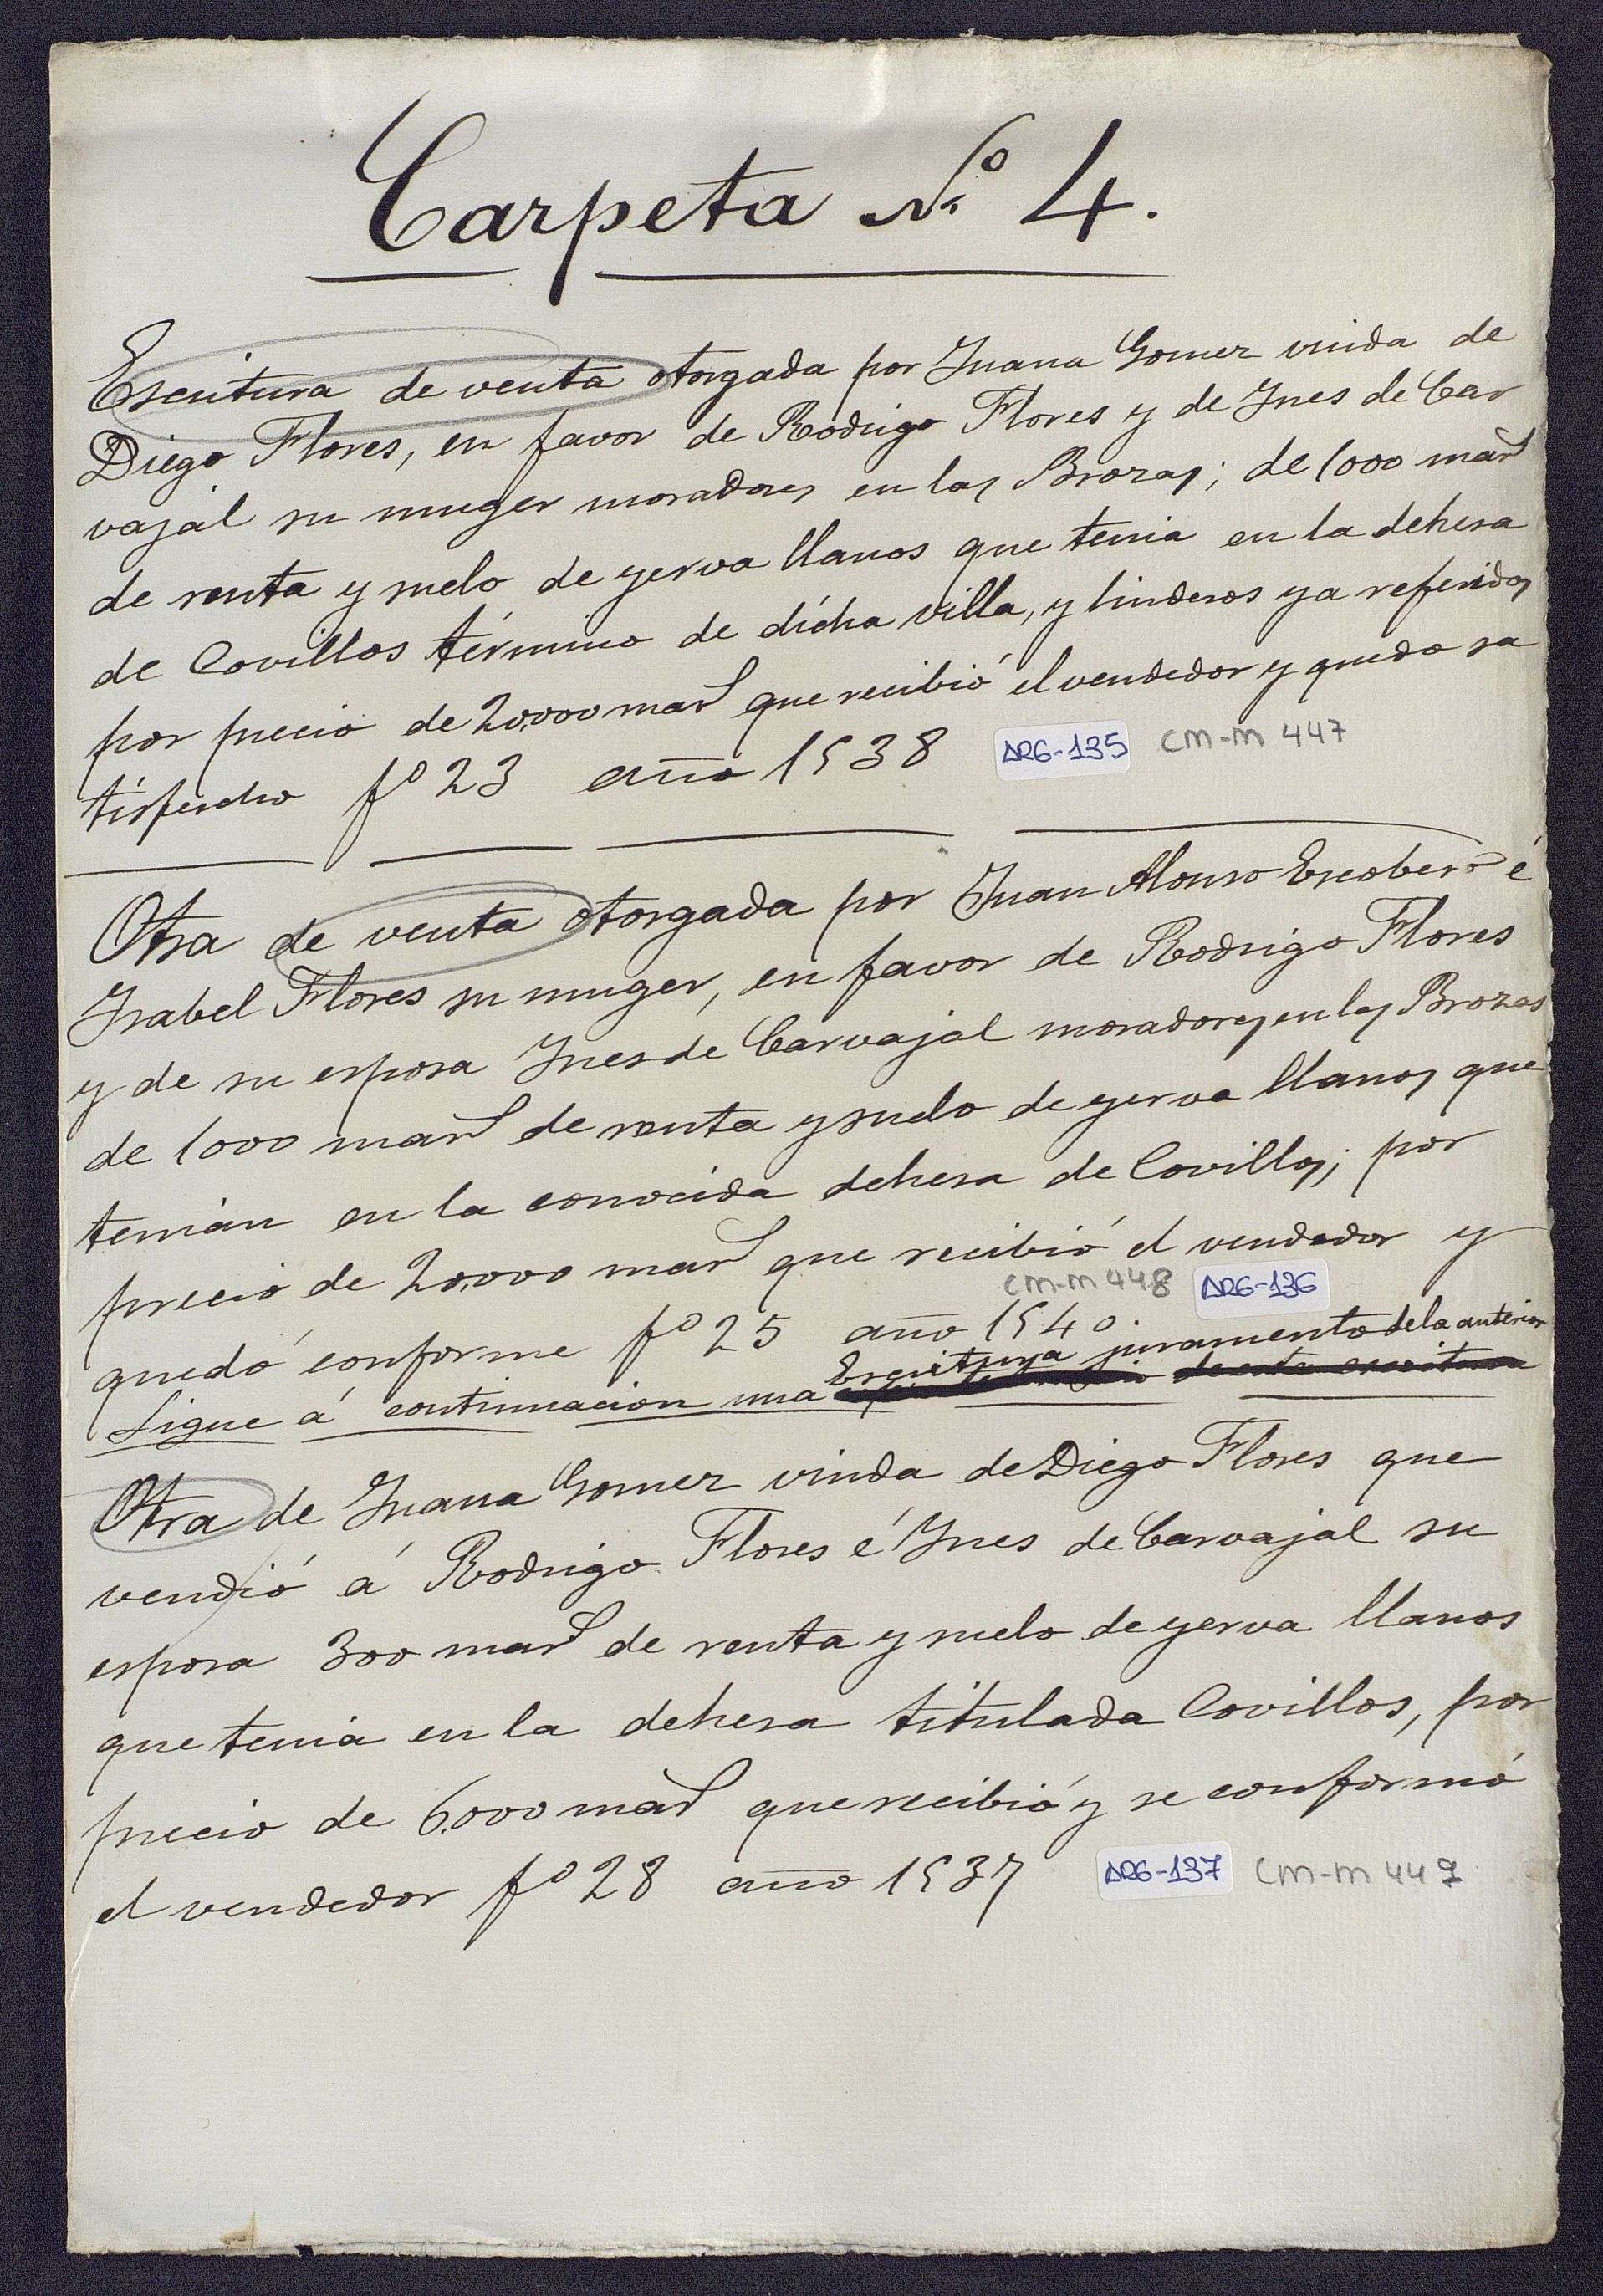 Carpeta Nº 4.
Escritura de venta otorgada por Juana Gomez viuda de
Diego Flores, en favor de Rodrigo Flores y de Ynes de Car
vajal su muger moradores en las Brozas; de 1000 mars
de renta y suelo de yerva llanos que tenia en la dehesa
de Covillos término de dicha villa, y linderos ya referidos
por precio de 20.000 mars que recibió el vendedor y quedo sa
tisfecho fº 23 año 1538 ARG-135 CM-M 447
Otra de venta otorgada por Juan Alonso Escobero é
Ysabel Flores su muger, en favor de Rodrigo Flores
y de su esposa Ynes de Carvajal moradores en las Brozas
de 1000 mars de renta y suelo de yerva llanos que
tenián en la conocida dehesa de Covillos; por
precio de 20.000 mars que recibió el vendedor y
quedó conforme fº 25 año 1540. CM-M 448 ARG-136
Sigue á continuacion una Escritura juramento de la anterior
de esta escritura
Otra de Juana Gomez viuda de Diego Flores que
vendió á Rodrigo Flores é Ynes de Carvajal su
esposa 300 mars de renta y suelo de yerva llanos
que tenia en la dehesa titulada Covillos, por
precio de 6.000 mars que recibió y se conformó
el vendedor fº 28 año 1537 ARG-137 CM-M 449